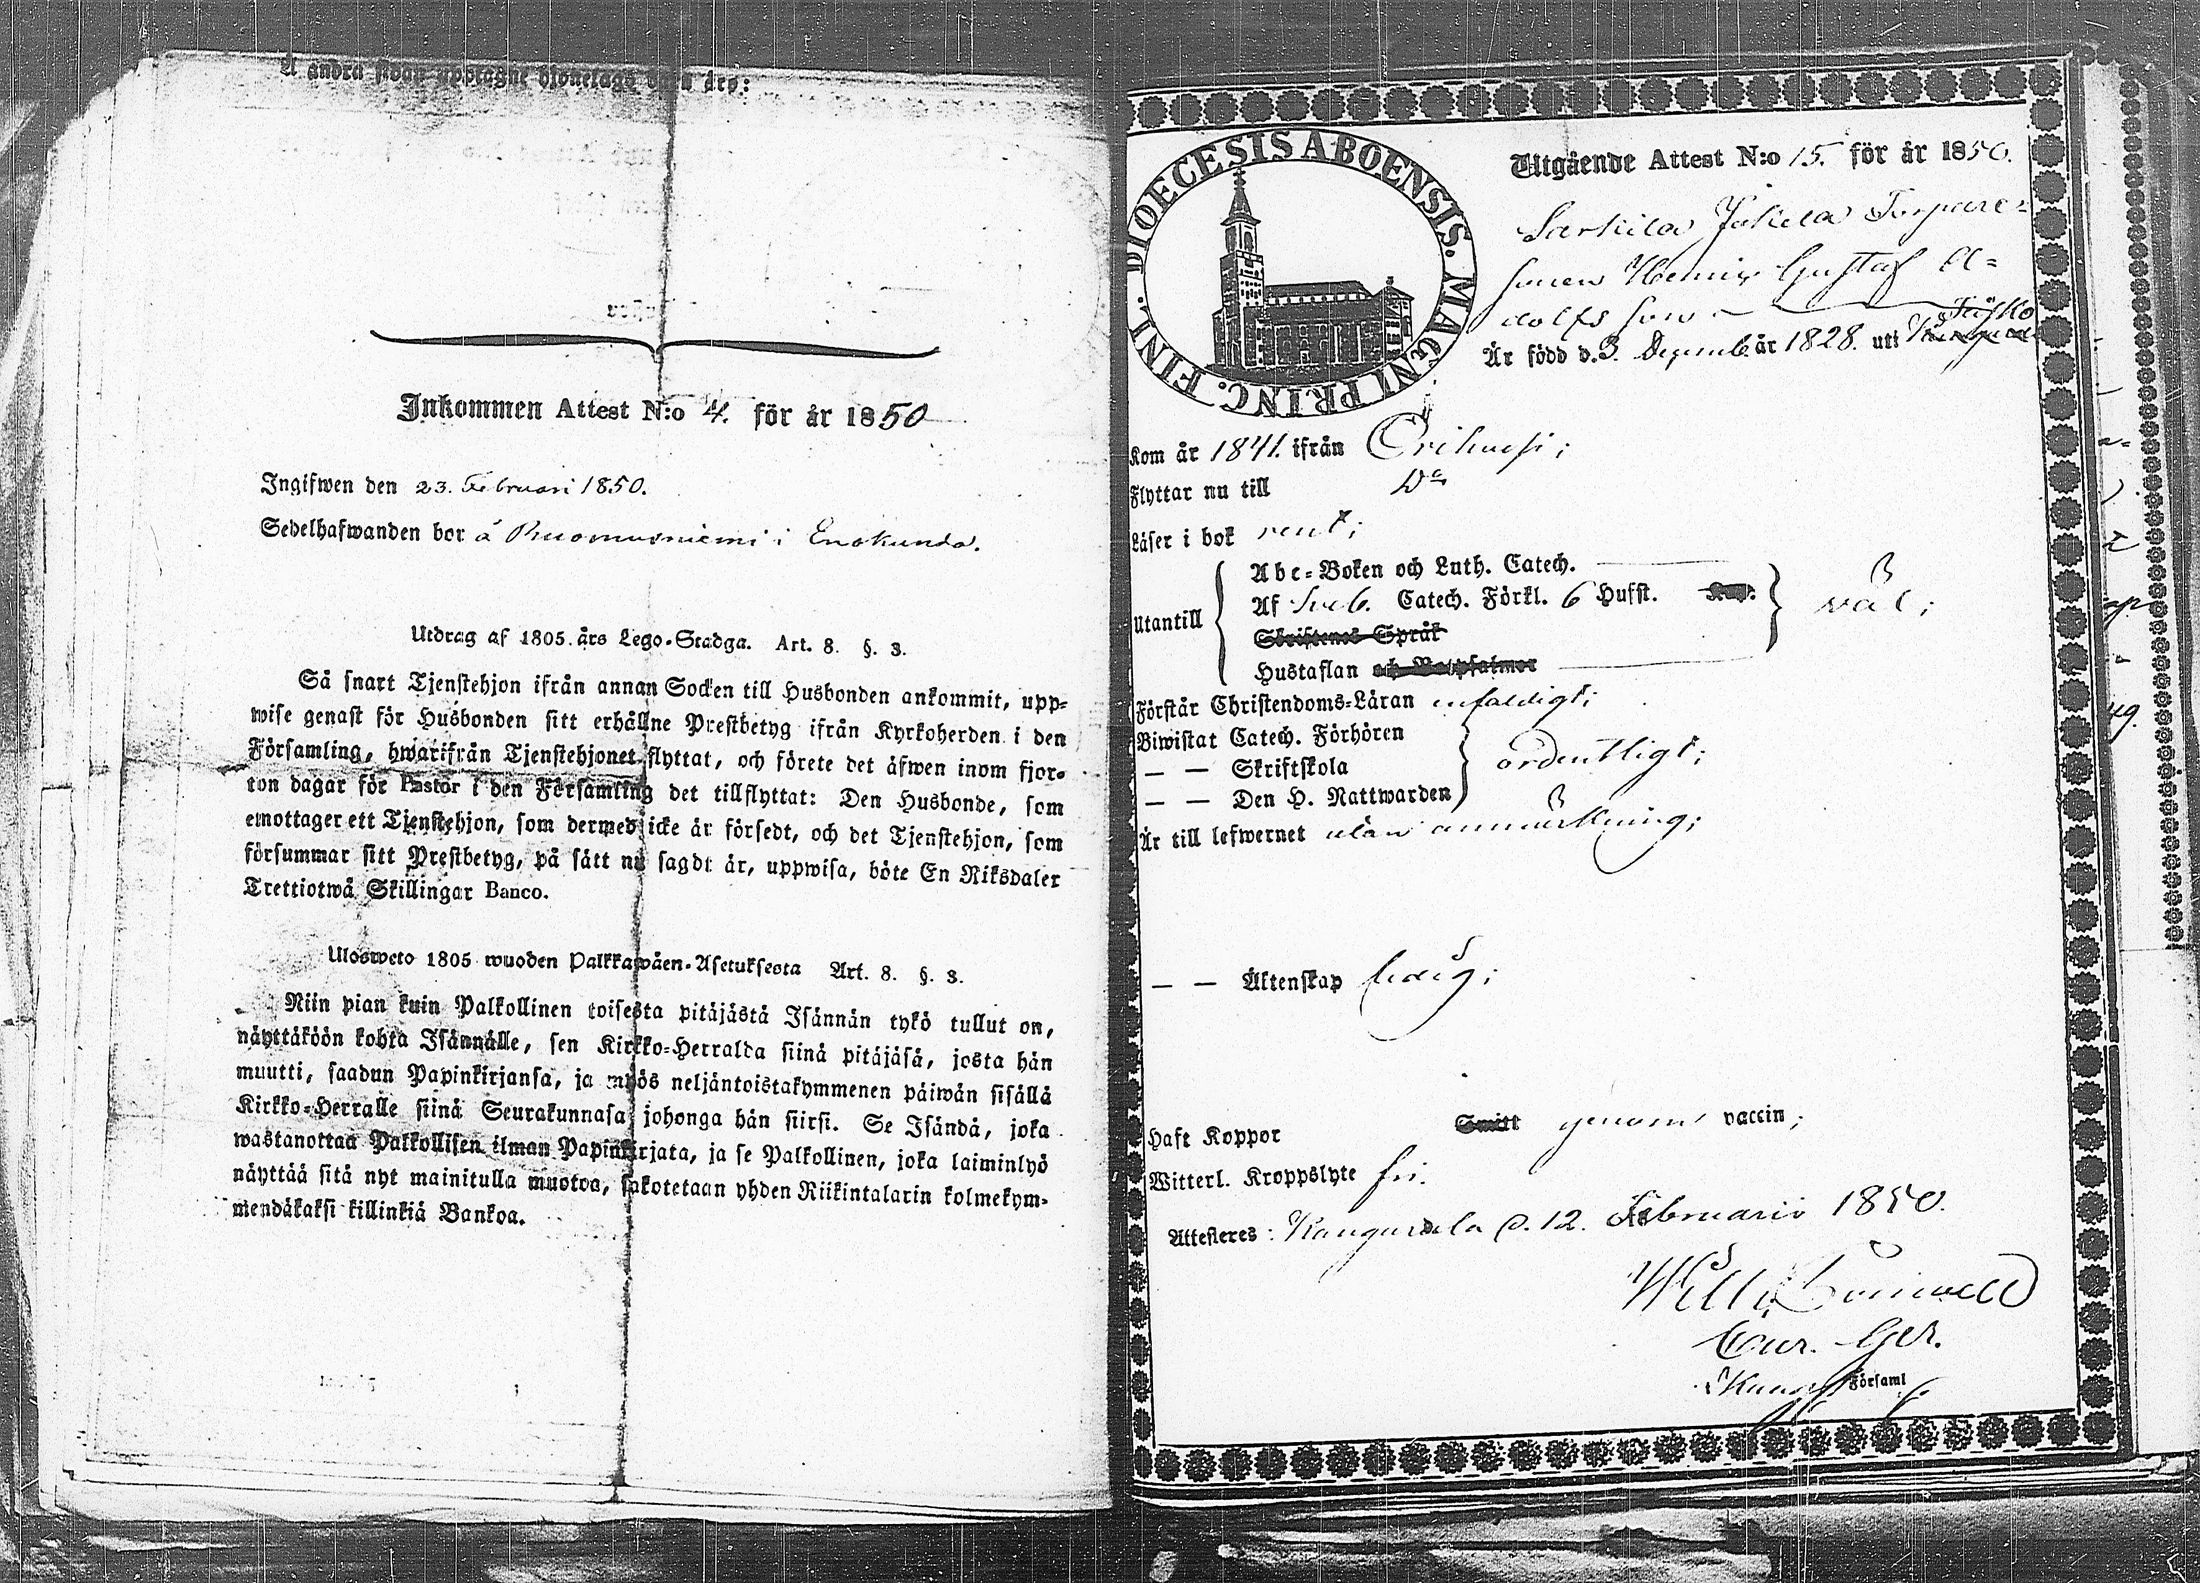 Å andra sidan upptagne äro:
Inkommen Attest N:o 4. för år 1850
Ingifwen den 23. Februari 1850.
Sedelhafwanden bor å Ruomusniemi i Enokunda.
Utdrag af 1805. års Lego-Stadga. Art. 8. §. 3.
Så snart Tjenstehjon ifrån annan Socken till Husbonden ankommit, upp-
wise genast för Husbonden sitt erhållne Prestbetyg ifrån Kyrkoherden i den
Församling, hwarifrån Tjenstehjonet flyttat, och förete det äfwen inom fjor-
ton dagar för Pastor i den Församling det tillflyttat: Den Husbonde, som
emottager ett Tjenstehjon, som dermed icke är försedt, och det Tjenstehjon, som
försummar sitt Prestbetyg, på sätt nu sagdt är, uppwisa, böte En Riksdaler
Trettiotwå Skillingar Banco.
Ulosweto 1805 wuoden Palkkawäen-Asetuksesta Art. 8. §. 3.
Niin pian kuin Palkollinen toisesta pitäjästä Isännän tykö tullut on,
näyttäköön kohta Isännälle, sen Kirkko-Herralda siinä pitäjäsä, josta hän
muutti, saadun Papinkirjansa, ja myös neljäntoistakymmenen päiwän sisällä
Kirkko-Herralle siinä Seurakunnasa johonga hän siirsi. Se Isändä, joka
wastanottaa Palkollisen ilman Papinkirjata, ja se Palkollinen, joka laiminlyö
näyttää sitä nyt mainitulla muotoa, sakotetaan yhden Riikintalarin kolmekym-
mendäkaksi killinkiä Bankoa.
DIOECESIS ABOENSIS. MAGNI PRINC. FINL.
Utgående Attest N:o 15. för år 1850.
Sarkila Jokela Torpare-
sonen Henric Gustaf A-
dolfs son
Är född d. 3. Decemb. år 1828. uti
Kom år 1841. ifrån Orihvesi;
Flyttar nu till Do
Läser i bok rent;
Utantill
Abc-Boken och Luth. Catech.
Af Sveb. Catech. Förkl. 6 Hufst.
Skriftenes Språk
Hustaflan och Botpsalmer
väl;
Förstår Christendoms-Läran enfaldigt;
Biwistat Catech. Förhören
— — Skriftskola
— — Den H. Nattwarden
ordentligt;
Är till lefwernet utan anmärkning;
— — Äktenskap ledig;
Haft Koppor Smitt genom vaccin;
Witterl. Kroppslyte fri.
Attesteres: Kangasala d. 12. Februarii 1850.
Församl